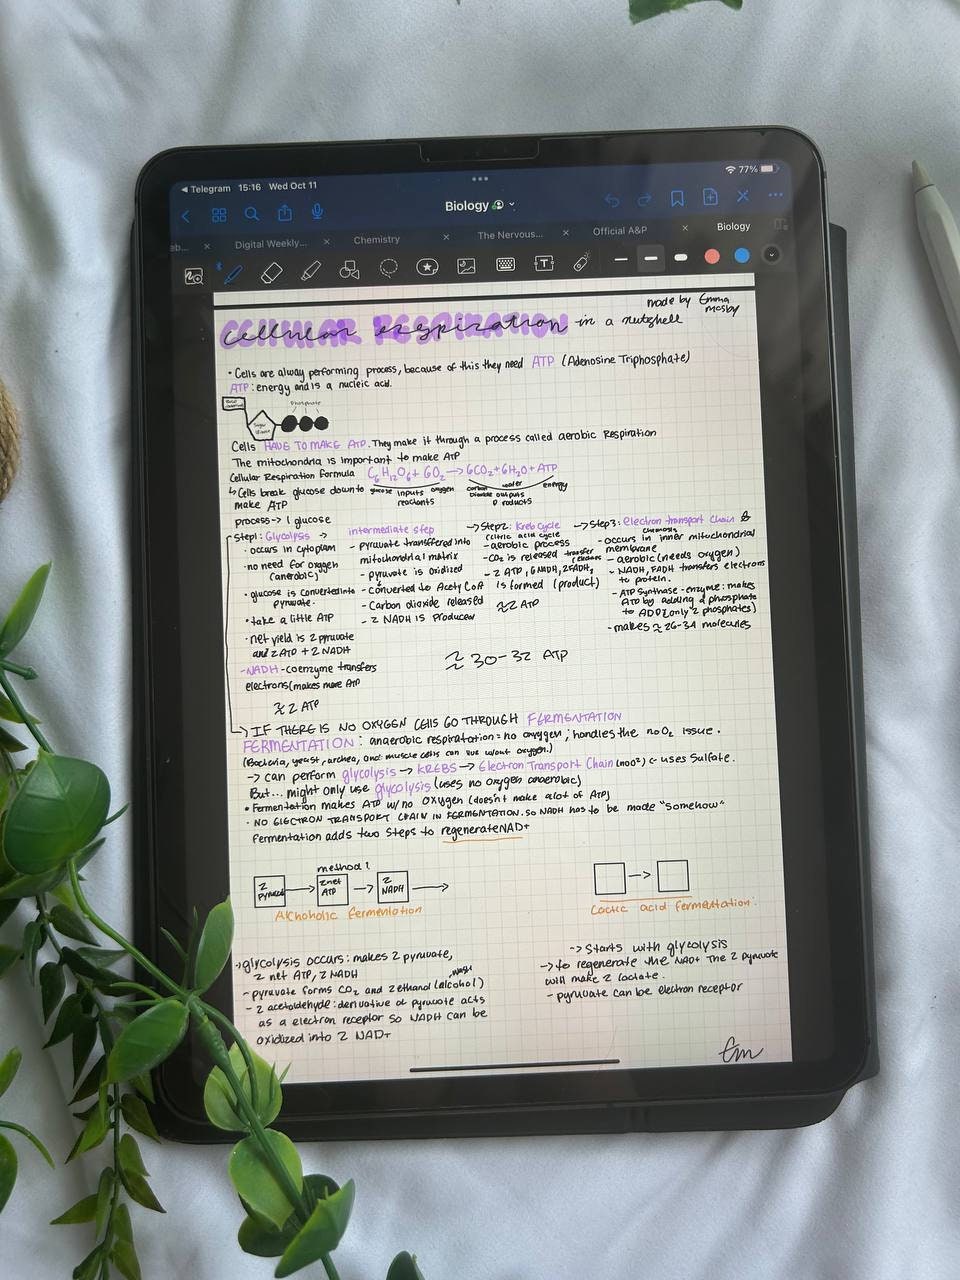 Telegram 15:16 Wed Oct 11
77%
Biology
Digital Weekly...
Chemistry
The Nervous...
Official A&P
Biology
made by Emma
Mosby
Cellular Respiration in a nutshell
• Cells are alway performing process, because of this they need ATP (Adenosine Triphosphate)
ATP: energy and is a nucleic acid.
Phosphate
Sugar
Cells HAVE TO MAKE ATP. They make it through a process called aerobic Respiration
The mitochondria is important to make ATP
Cellular Respiration Formula C6H12O6 + 6O2 → 6CO2 + 6H2O + ATP
↳ Cells break glucose down to
make ATP
glucose inputs oxygen
reactants
carbon water energy
Dioxide outputs
Products
process -> 1 glucose
Step1: Glycolysis →
• occurs in cytoplam
• no need for oxygen
(anerobic)
• glucose is converted into
pyruvate.
• take a little ATP
• net yield is 2 pyruvate
and 2 ATP + 2 NADH
-NADH - coenzyme transfers
electrons (makes more ATP
≈ 2 ATP
intermediate step
- pyruvate transffered into
mitochondrial matrix
- pyruvate is oxidized
- Converted to Acety CoA
- Carbon dioxide released
- 2 NADH is producer
→ Step2: Kreb Cycle
(citric acid cycle
- aerobic process
- CO2 is released
- 2 ATP, 6 NADH, 2 FADH2
is formed (product)
≈ 2 ATP
→ Step3: electron transport Chain &
- occurs in inner mitochondrial
membrane
- aerobic (needs oxygen)
- NADH, FADH transfers electrons
to protein.
- ATP Synthase - enzyme: makes
ATP by adding a phosphate
to ADP (only 2 phosphates)
- makes ≈ 26-34 molecules
≈ 30-32 ATP
↳ IF THERE IS NO OXYGEN CELLS GO THROUGH FERMENTATION
FERMENTATION: anaerobic respiration = no oxygen; handles the no O2 issue.
(Bacteria, yeast, archea, and muscle cells can live w/out oxygen.)
→ can perform glycolysis → KREBS → Electron Transport Chain (no O2) ← uses Sulfate.
But... might only use glycolysis (uses no oxygen anaerobic)
• Fermentation makes ATP w/ no oxygen (doesn't make alot of ATP)
• NO ELECTRON TRANSPORT CHAIN IN FERMENTATION. SO NADH has to be made "somehow"
Fermentation adds two steps to regenerate NAD+
method 1
2
→
2 net
ATP
→
2
NADH
→
Alchoholic fermentation
→
Lactic acid fermentation:
→ glycolysis occurs: makes 2 pyruvate,
2 net ATP, 2 NADH
- pyruvate forms CO2 and 2 ethanol (alcohol)
- 2 acetaldehyde: derivative of pyruvate acts
as a electron receptor so NADH can be
oxidized into 2 NAD+
-> Starts with glycolysis
-> to regenerate the NAD+ the 2 pyruvate
will make 2 lactate.
- pyruvate can be electron receptor
Em